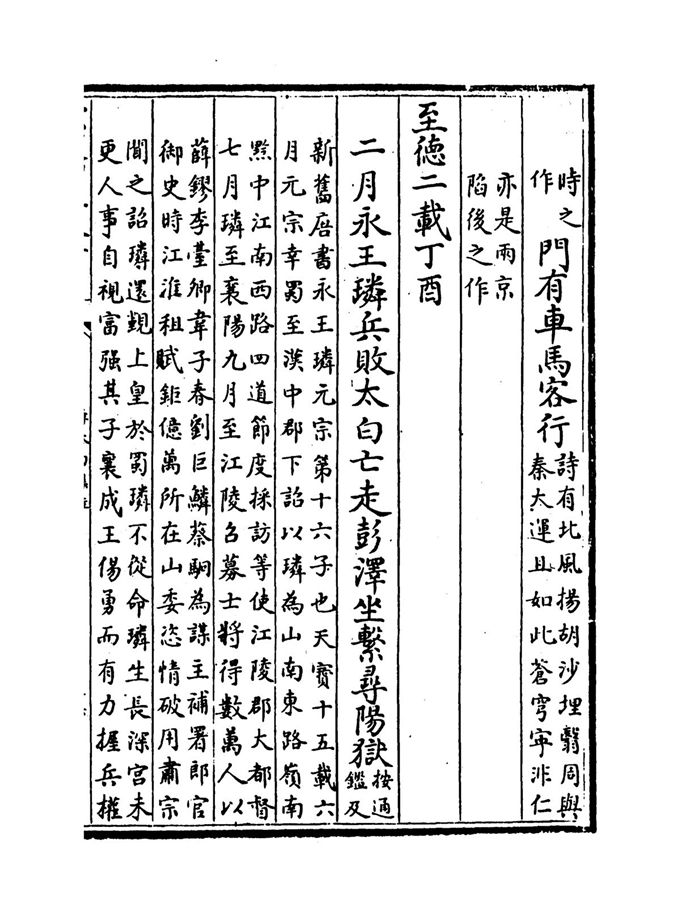 時之
作
門有車馬客行
詩有北風揚胡沙埋翳周與
秦太運且如此蒼穹寧泄仁
亦是兩京
陷後之作
至德二載丁酉
二月永王璘兵敗太白亡走彭澤坐繫尋陽獄
按通
鑑及
新舊唐書永王璘元宗第十六子也天寶十五載六
月元宗幸蜀至漢中郡下詔以璘為山南東路嶺南
黔中江南西路四道節度採訪等使江陵郡大都督
七月璘至襄陽九月至江陵召募士將得數萬人以
薛鏐李臺卿韋子春劉巨鱗蔡駉為謀主補署郎官
御史時江淮租賦鉅億萬所在山委恣情破用肅宗
聞之詔璘還覲上皇於蜀璘不從命璘生長深宮未
更人事自視富强其子襄成王偒勇而有力握兵權